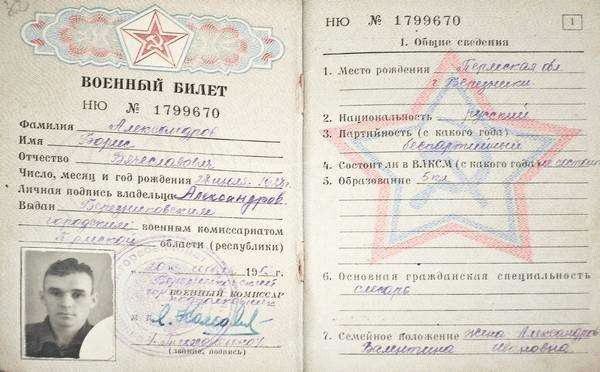 ВОЕННЫЙ БИЛЕТ
НЮ № 1799670
Фамилия Александров
Имя Борис
Отчество Вячеславович
Число, месяц и год рождения
Личная подпись владельца Александров
Выдан Березниковским
городским военным комиссариатом
Пермской области (республики)
196 г.
ВОЕННЫЙ КОМИССАР
(звание, подпись)
НЮ № 1799670
1
I. Общие сведения
1. Место рождения Пермская обл
г. Березники
2. Национальность русский
3. Партийность (с какого года)
беспартийный
4. Состоит ли в ВЛКСМ (с какого года) не состоит
5. Образование 5 кл
6. Основная гражданская специальность
слесарь
7. Семейное положение жена Александрова
Валентина Ивановна